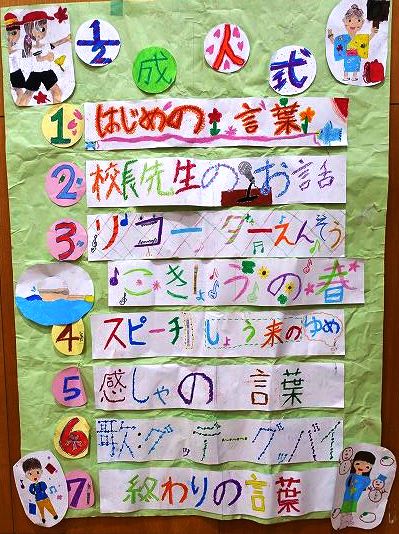 1/2成人式
1 はじめの言葉
2 校長先生のお話
3 リコーダーえんそう
こきょうの春
4 スピーチ しょう来のゆめ
5 感しゃの言葉
6 歌:グッデーグッバイ
7 終わりの言葉